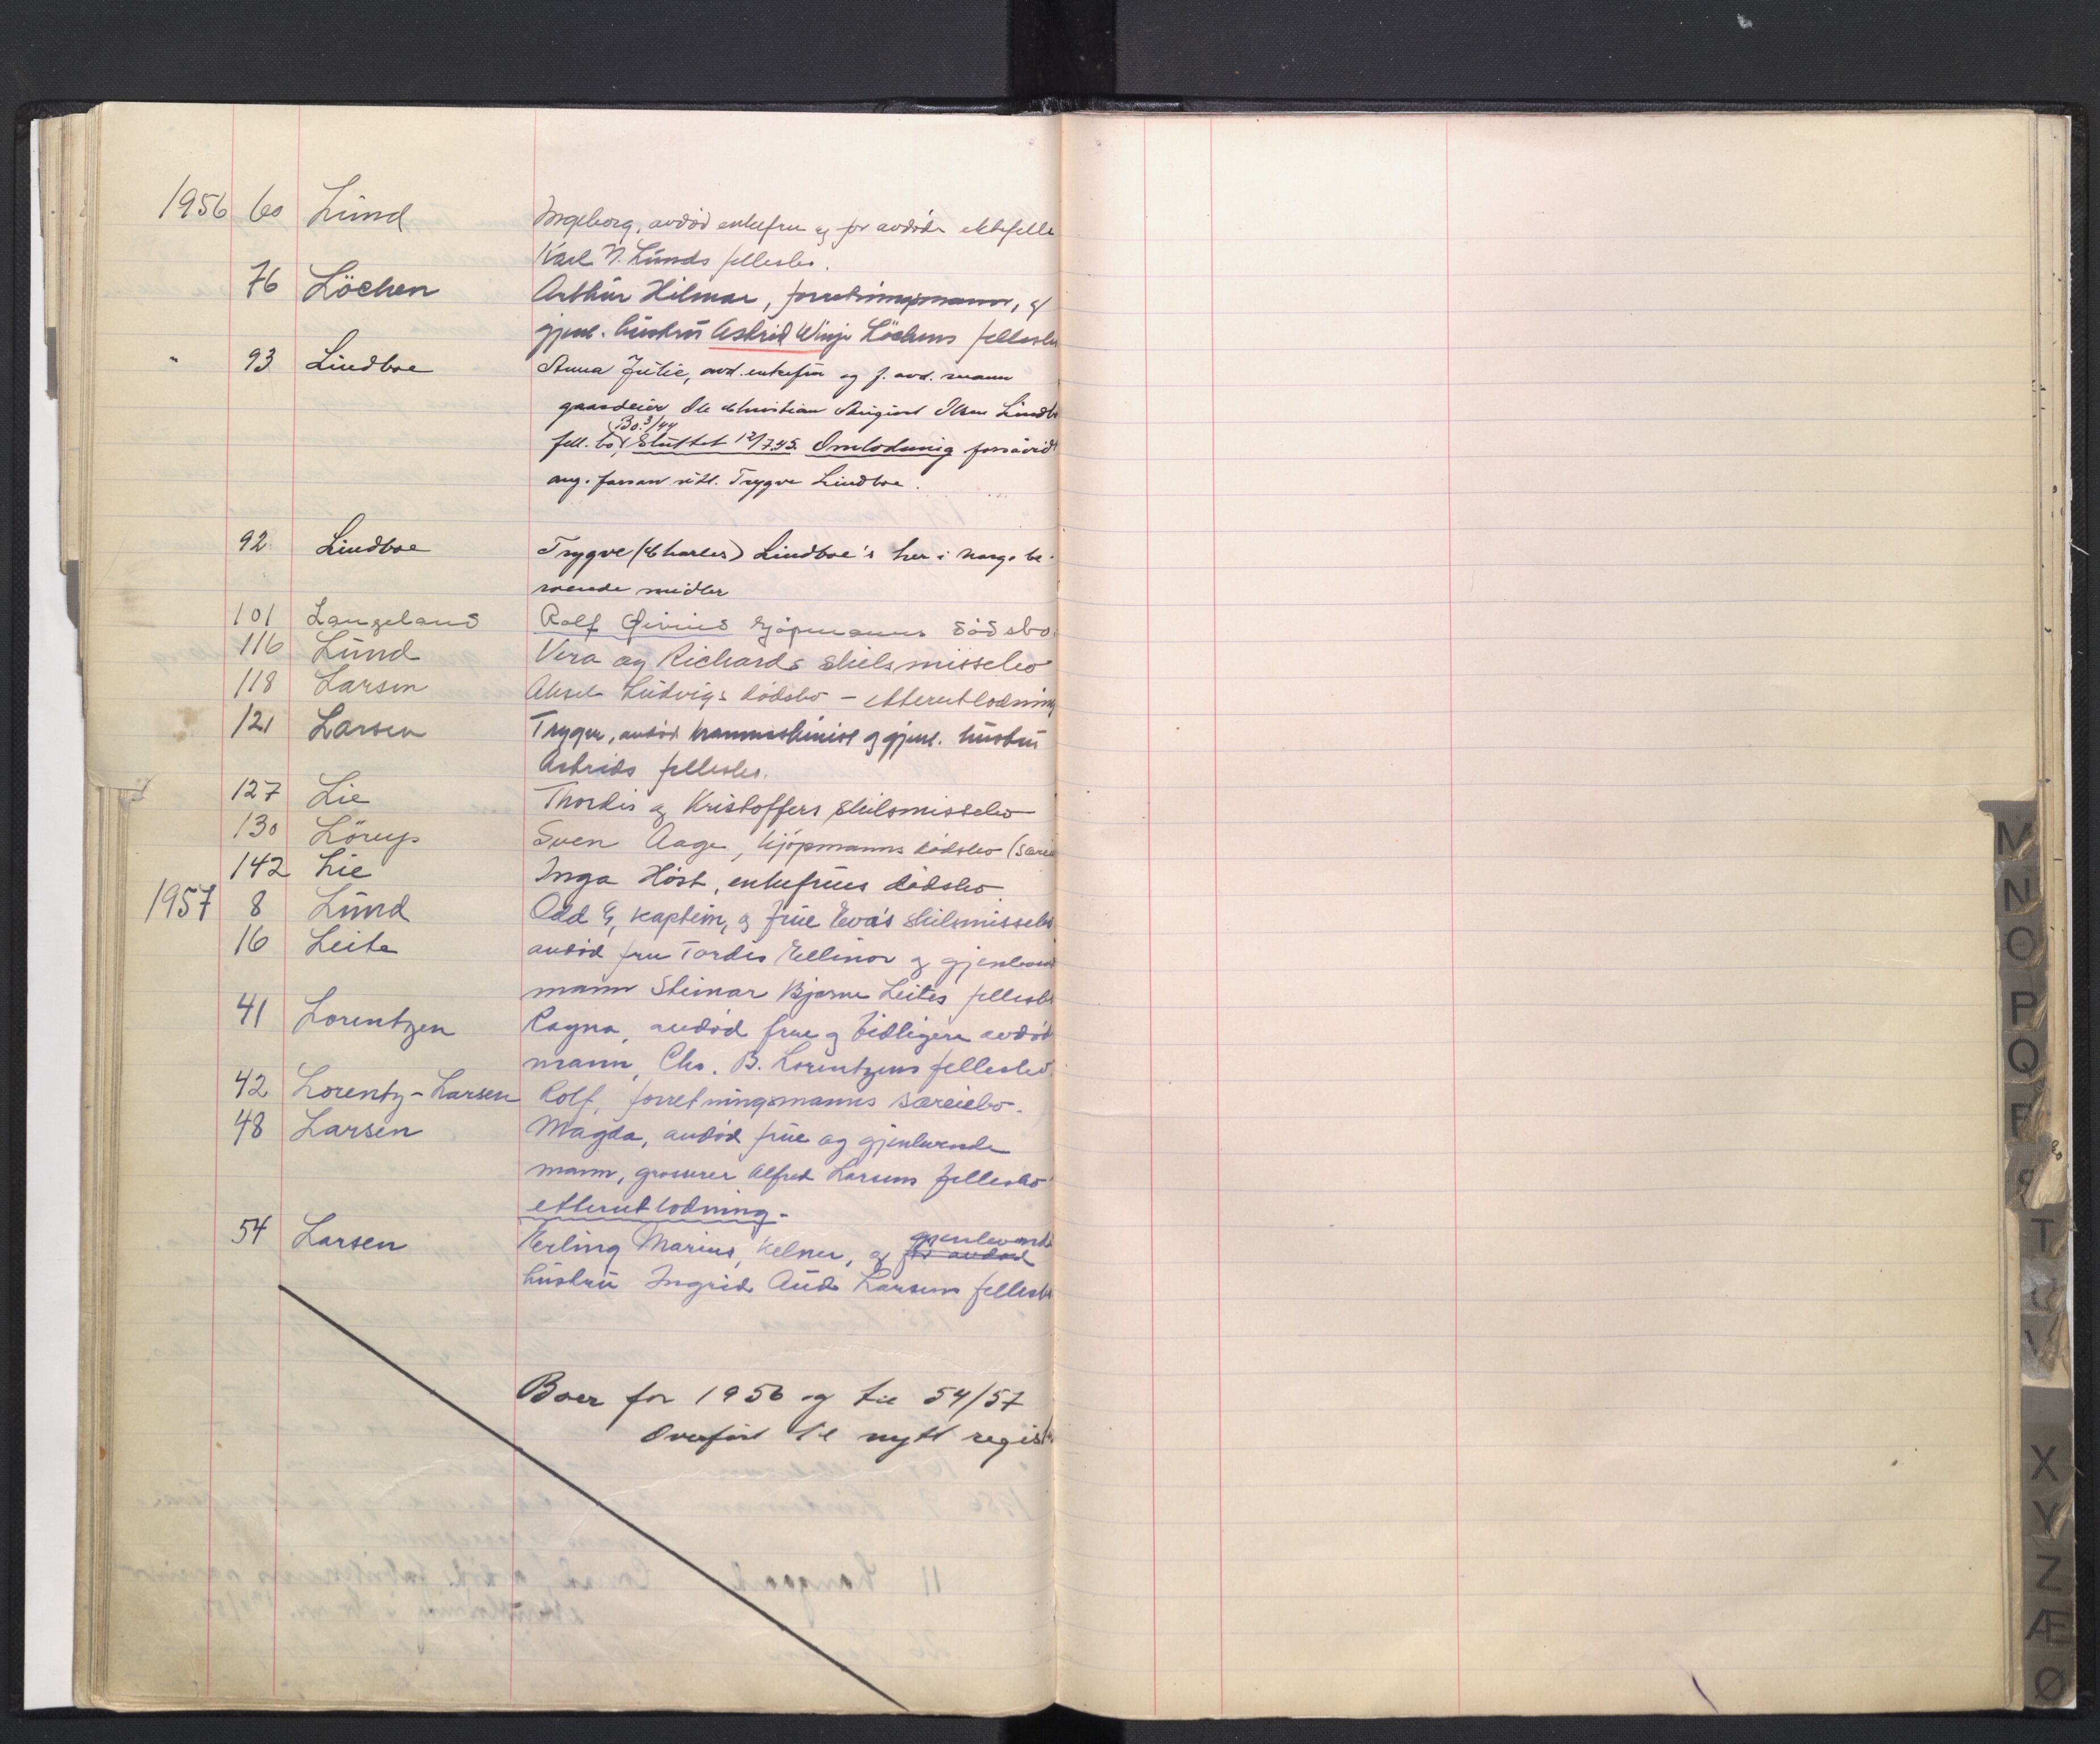 1956 60 Lund Ingeborg, avdød enkefru og før avdøde ektefelle
Karl N. Lunds fellesbo.
76 Löchen Arthur Hilmar, forretningsmann, og
gjenl. hustru Astrid Winje Löchens fellesbo
" 93 Lindboe Anna Julie, avd. enkefru og f. avd. mann
gaardeier Ole Christian August Olsen Lindb
Bo. 3/44
fell. bo, Sluttet 12/7.45. Omlodning forsåvidt
ang. farsarv utl. Trygve Lindboe.
92 Lindboe Trygve (Charles) Lindboe's her i Norge be-
roende midler
101 Langeland Rolf Øivind kjøpmanns dødsbo.
116 Lund Vera og Richards skilsmissebo
118 Larsen Aksel Ludvigs dødsbo - etterutlodning
121 Larsen Trygve, avdød kranmaskinist og gjenl. hustru
Astrids fellesbo.
127 Lie Thordis og Kristoffers skilsmissebo
130 Lörup Sven Aage, kjøpmanns dødsbo (særei
142 Lie Inga Höst, enkefrues dødsbo
1957 8 Lund Odd G, kaptein, og frue Eva's skilsmissebo
16 Leite avdød fru Tordis Ellinor og gjenlevend
mann Steinar Bjarne Leites fellesbo
41 Lorentzen Ragna, avdød frue og tidligere avdød
mann, Chr. B. Lorentzens fellesbo.
42 Lorentz-Larsen Rolf, forretningsmanns særeiebo.
48 Larsen Magda, avdød frue og gjenlevende
mann, grosserer Alfred Larsens fellesbo
etterutlodning.
gjenlevende
54 Larsen Erling Marius, kelner, og før avdød
hustru Ingrid Aud Larsens fellesbo
Boer for 1956 og til 54/57
Overført til nytt regist.
M
N
O
P
Q
R
S
T
U
V
X
Y
Z
Æ
Ø